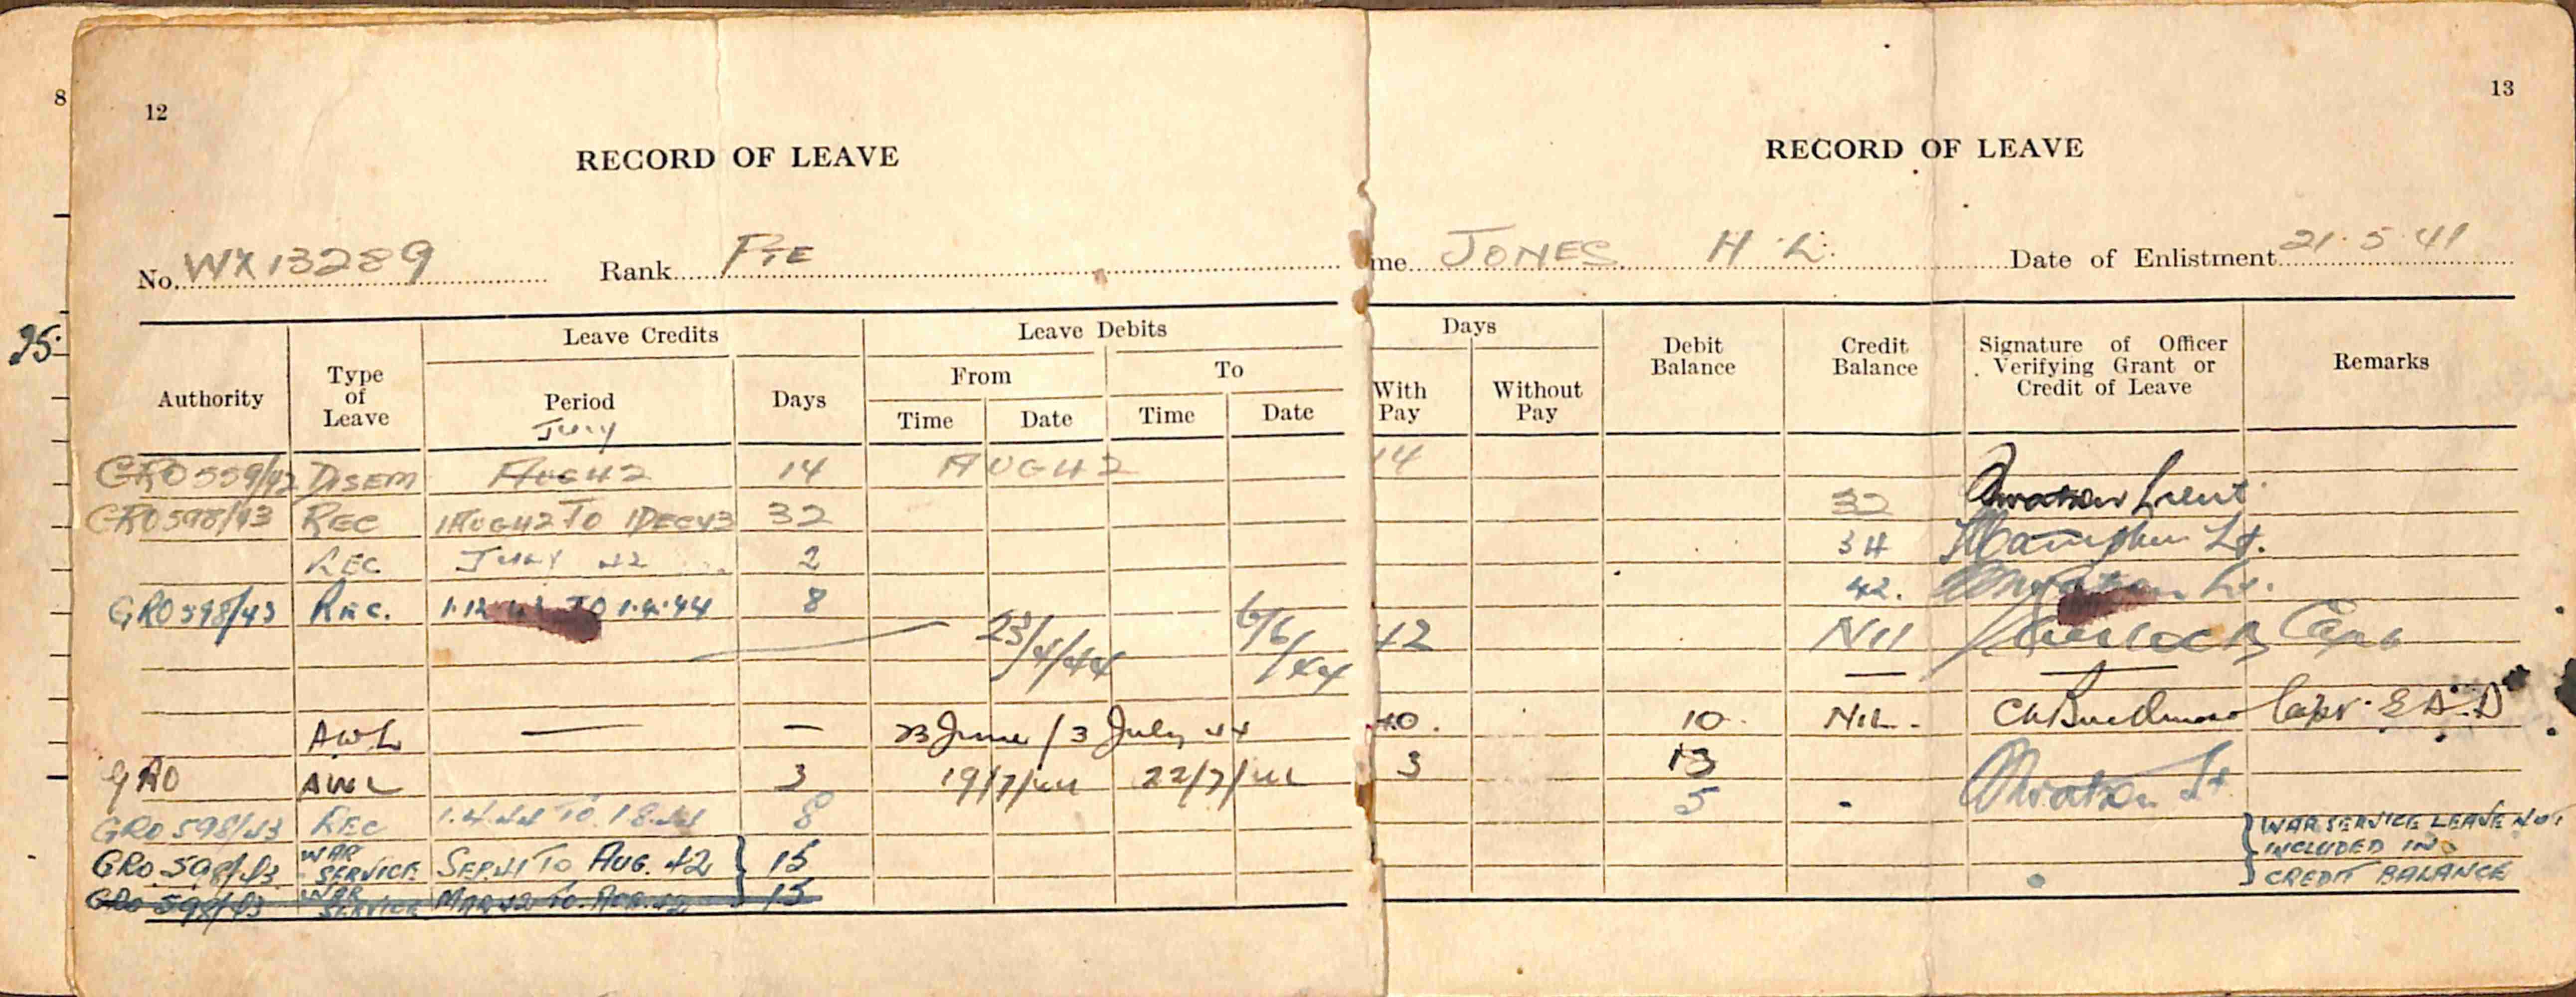 8
12
13
RECORD OF LEAVE
RECORD OF LEAVE
No. WX13289 Rank PTE
me JONES H. L. Date of Enlistment 21.5.41
95.
Authority
Type of Leave
Leave Credits
Period
Days
Leave Debits
From
To
Time Date Time Date
Days
With Pay
Without Pay
Debit Balance
Credit Balance
Signature of Officer Verifying Grant or Credit of Leave
Remarks
JULY
GRO 559/42 DISEM AUG 42 14 AUG 42 14
GRO 598/43 REC 1 AUG 42 TO 1 DEC 43 32 32 Lieut
REC JULY 42 2 34 Lt.
GRO 598/43 REC. 1.12.43 TO 1.4.44 8 42. Lt.
23/4/44 6/6/44 42 Nil Capt
AWL — — 23 June / 3 July 44 10. 10. NIL. Capt. E.A.D
GRO AWL 3 19/7/44 22/7/44 3 13 Lt
GRO 598/43 REC 1.4.44 TO 1.8.44 8 5 -
GRO 598/43 WAR SERVICE SEP 41 TO AUG. 42 15
GRO 598/43 WAR SERVICE MAR 42 TO 15
WAR SERVICE LEAVE NOT
INCLUDED IN
CREDIT BALANCE